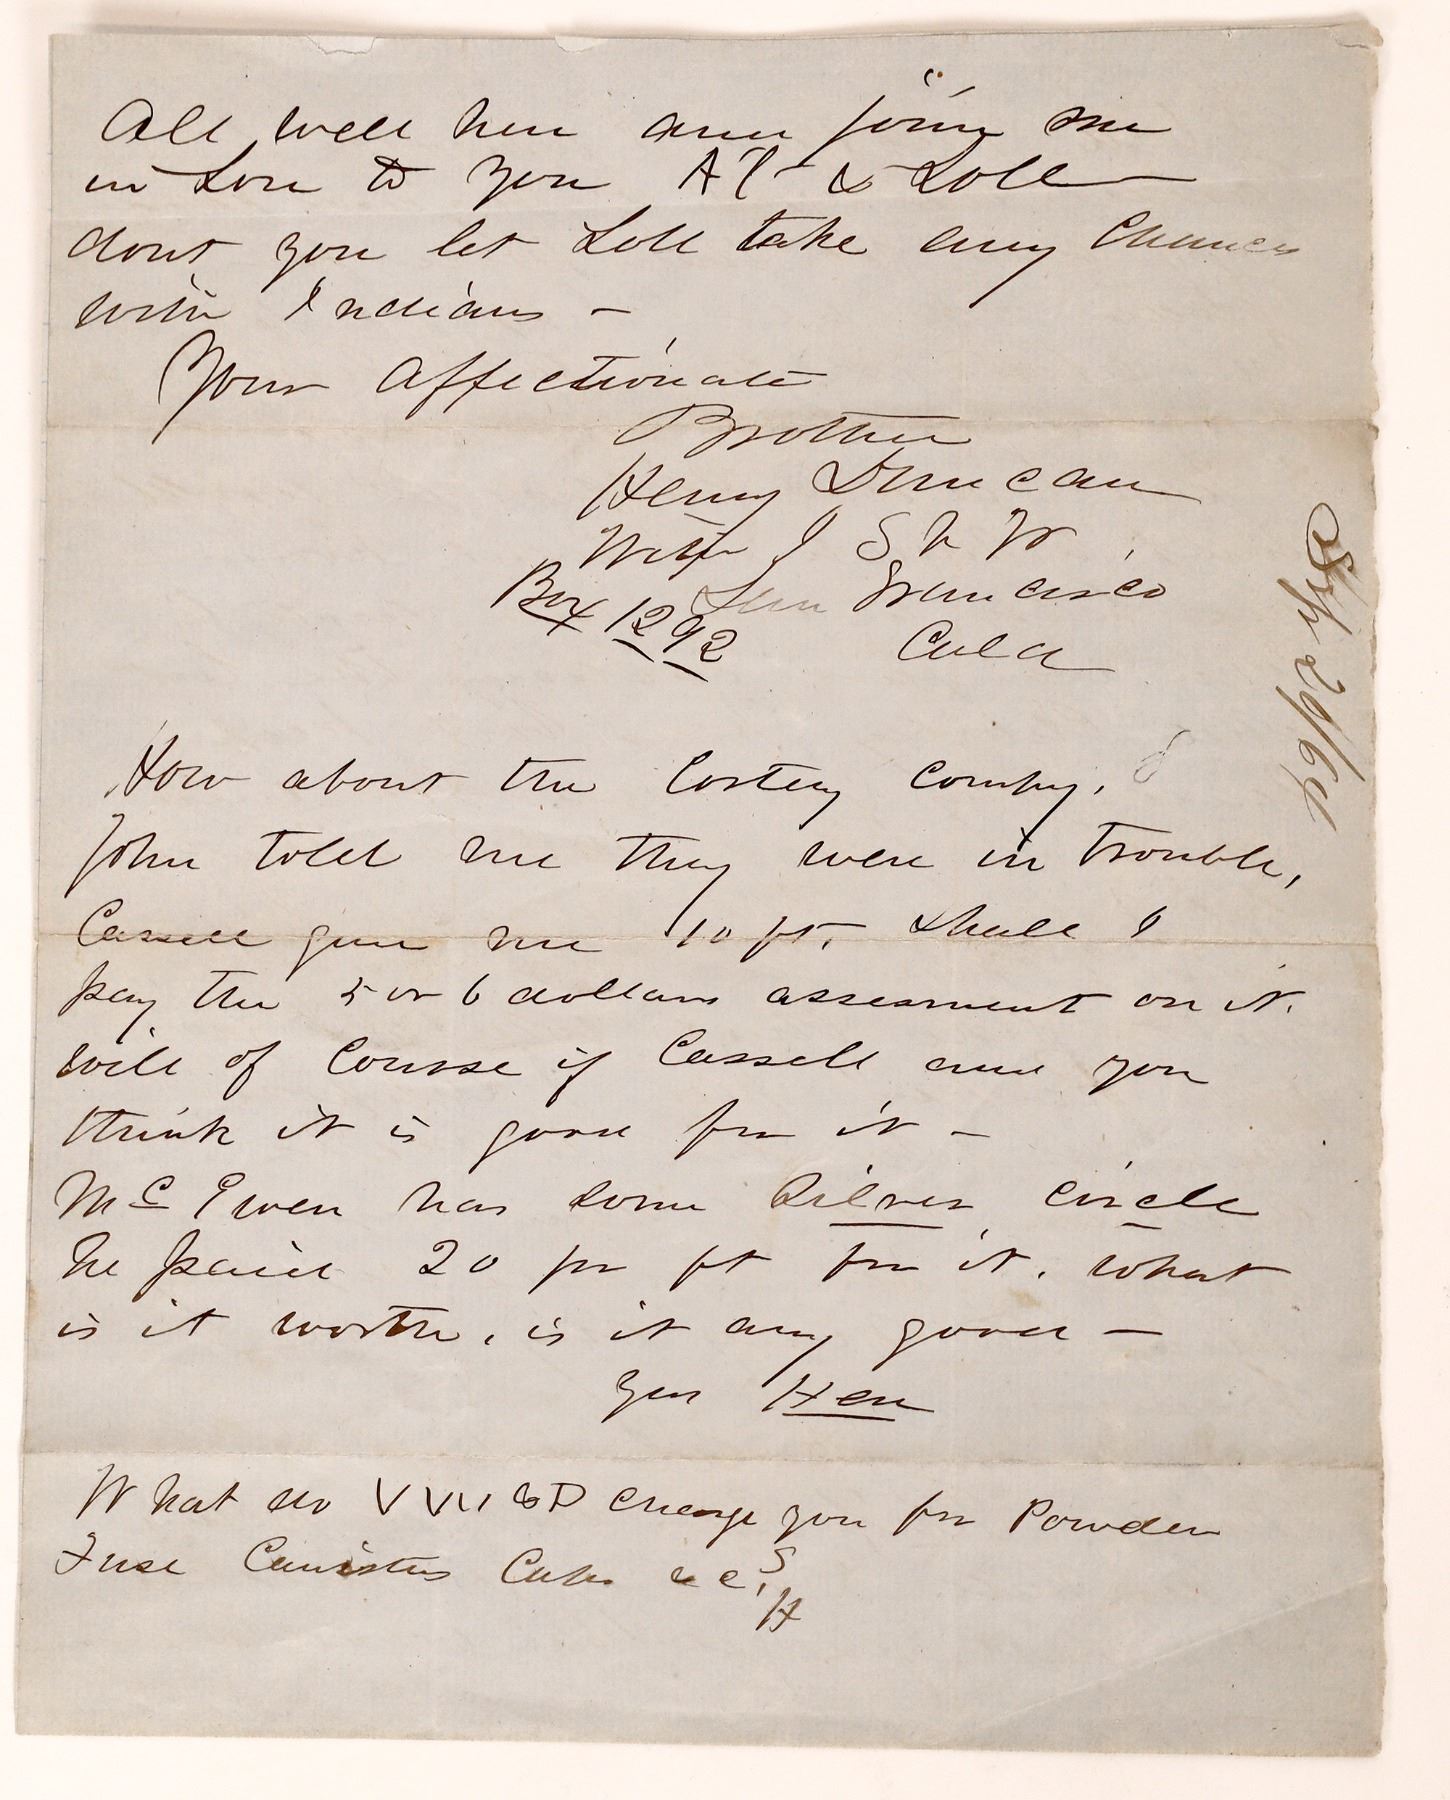 All well here and join me
in Love to you & Loll
dont you let Loll take any Chances
with Indians –
Your Affectionate
Brother
Henry Duncan
With
Box 1292 San Francisco
Cala
How about the company,
John told me they were in trouble,
Cassell gave me 10 ft. shall I
pay the 5 or 6 dollars assesment on it.
will of Course if Cassell and you
think it is good for it –
McEwen has some Silver Circle
he paid 20 pr ft for it. what
is it worth, is it any good –
Your Hen
What do charge you for Powder
Fuse Canisters Caps &c,
H
29/64